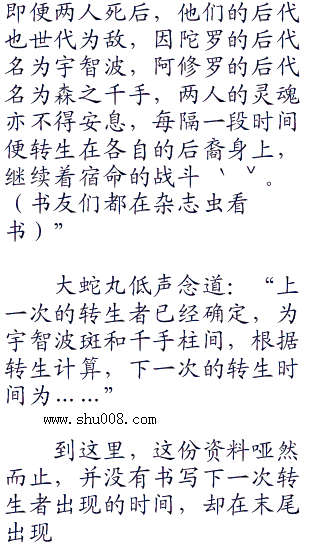 即便两人死后，他们的后代
也世代为敌，因陀罗的后代
名为宇智波，阿修罗的后代
名为森之千手，两人的灵魂
亦不得安息，每隔一段时间
便转生在各自的后裔身上，
继续着宿命的战斗﹑ˇ。
（书友们都在杂志虫看
书）”
大蛇丸低声念道：“上
一次的转生者已经确定，为
宇智波斑和千手柱间，根据
转生计算，下一次的转生时
间为……”
www.shu008.com
到这里，这份资料哑然
而止，并没有书写下一次转
生者出现的时间，却在末尾
出现